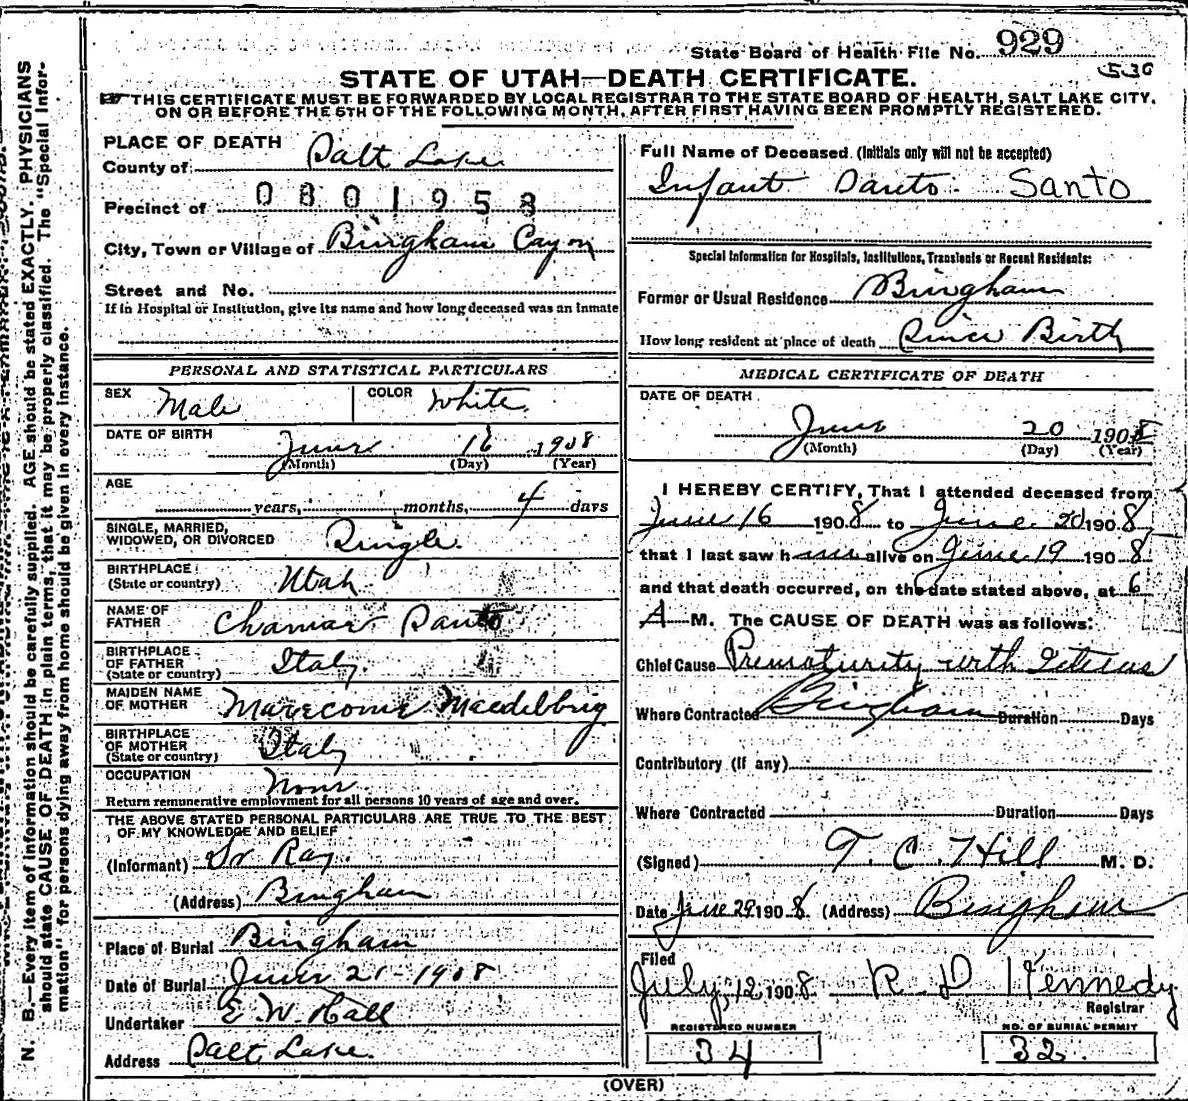 State Board of Health File No. 929
530
STATE OF UTAH—DEATH CERTIFICATE.
THIS CERTIFICATE MUST BE FORWARDED BY LOCAL REGISTRAR TO THE STATE BOARD OF HEALTH, SALT LAKE CITY,
ON OR BEFORE THE 5TH OF THE FOLLOWING MONTH, AFTER FIRST HAVING BEEN PROMPTLY REGISTERED.
N. B.—Every item of information should be carefully supplied. AGE should be stated EXACTLY. PHYSICIANS
should state CAUSE OF DEATH in plain terms, that it may be properly classified. The "Special Infor-
mation" for persons dying away from home should be given in every instance.
PLACE OF DEATH
County of Salt Lake
Precinct of 0801958
City, Town or Village of Bingham Cayon
Street and No.
If in Hospital or Institution, give its name and how long deceased was an inmate
PERSONAL AND STATISTICAL PARTICULARS
SEX Male COLOR White
DATE OF BIRTH June 16 1908
(Month) (Day) (Year)
AGE
years, months, 4 days
SINGLE, MARRIED,
WIDOWED, OR DIVORCED Single.
BIRTHPLACE
(State or country) Utah
NAME OF
FATHER Santo
BIRTHPLACE
OF FATHER
(State or country) Italy
MAIDEN NAME
OF MOTHER
BIRTHPLACE
OF MOTHER
(State or country) Italy
OCCUPATION None
Return remunerative employment for all persons 10 years of age and over.
THE ABOVE STATED PERSONAL PARTICULARS ARE TRUE TO THE BEST
OF MY KNOWLEDGE AND BELIEF
(Informant) Dr Ray
(Address) Bingham
Place of Burial Bingham
Date of Burial June 21-1908
Undertaker E. W. Hall
Address Salt Lake.
Full Name of Deceased (Initials only will not be accepted)
Infant Santo. Santo
Special Information for Hospitals, Institutions, Transients or Recent Residents:
Former or Usual Residence Bingham
How long resident at place of death Since Birth
MEDICAL CERTIFICATE OF DEATH
DATE OF DEATH
June 20 1908
(Month) (Day) (Year)
I HEREBY CERTIFY, That I attended deceased from
June 16 1908 to June 20 1908,
that I last saw him alive on June 19 1908
and that death occurred, on the date stated above, at 6
A M. The CAUSE OF DEATH was as follows:
Chief Cause Prematurity with Icterus
Where Contracted Bingham Duration Days
Contributory (if any)
Where Contracted Duration Days
(Signed) T. C. Hill M. D.
Date June 29 1908. (Address) Bingham
Filed
July, 12 1908 R D Kennedy
Registrar
REGISTERED NUMBER
34
NO. OF BURIAL PERMIT
32
(OVER)